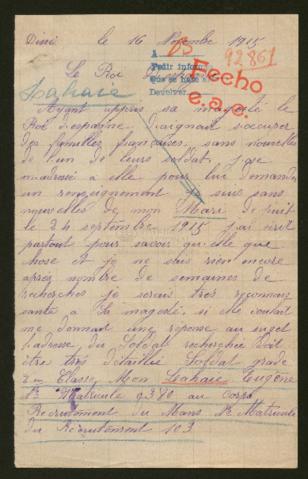 le 16 Novembre 1915
A
Pedir inform
Que se hace
Devolver.
B
Fecho
e.a.c.
92.861
Le Roi
Lahaie
Ayant appris sa majesté le
Roi d'espagne daignait s'occuper
des familles françaises sans nouvelles
de l'un de leurs soldat, j'ose
m'adressé a elle pour lui demander
un renseignement je suis sans
nouvelles de mon Mari depuit
le 24 septembre 1915 j'ai écrit
partout pour savoir quelle que
chose et je ne sais rien encore
après nombre de semaines de
recherches je serais très reconnais
sante a Sa magesté si elle voulait
me donnait une réponse au sujet
l'adresse du Soldat recherchée doit
être très détaillée Soldat grade
2me Classe Mon Lahaie Eugène
No Matricule 9380 au Corps
Recrutement du Mans No Matricule
du Recrutement 103